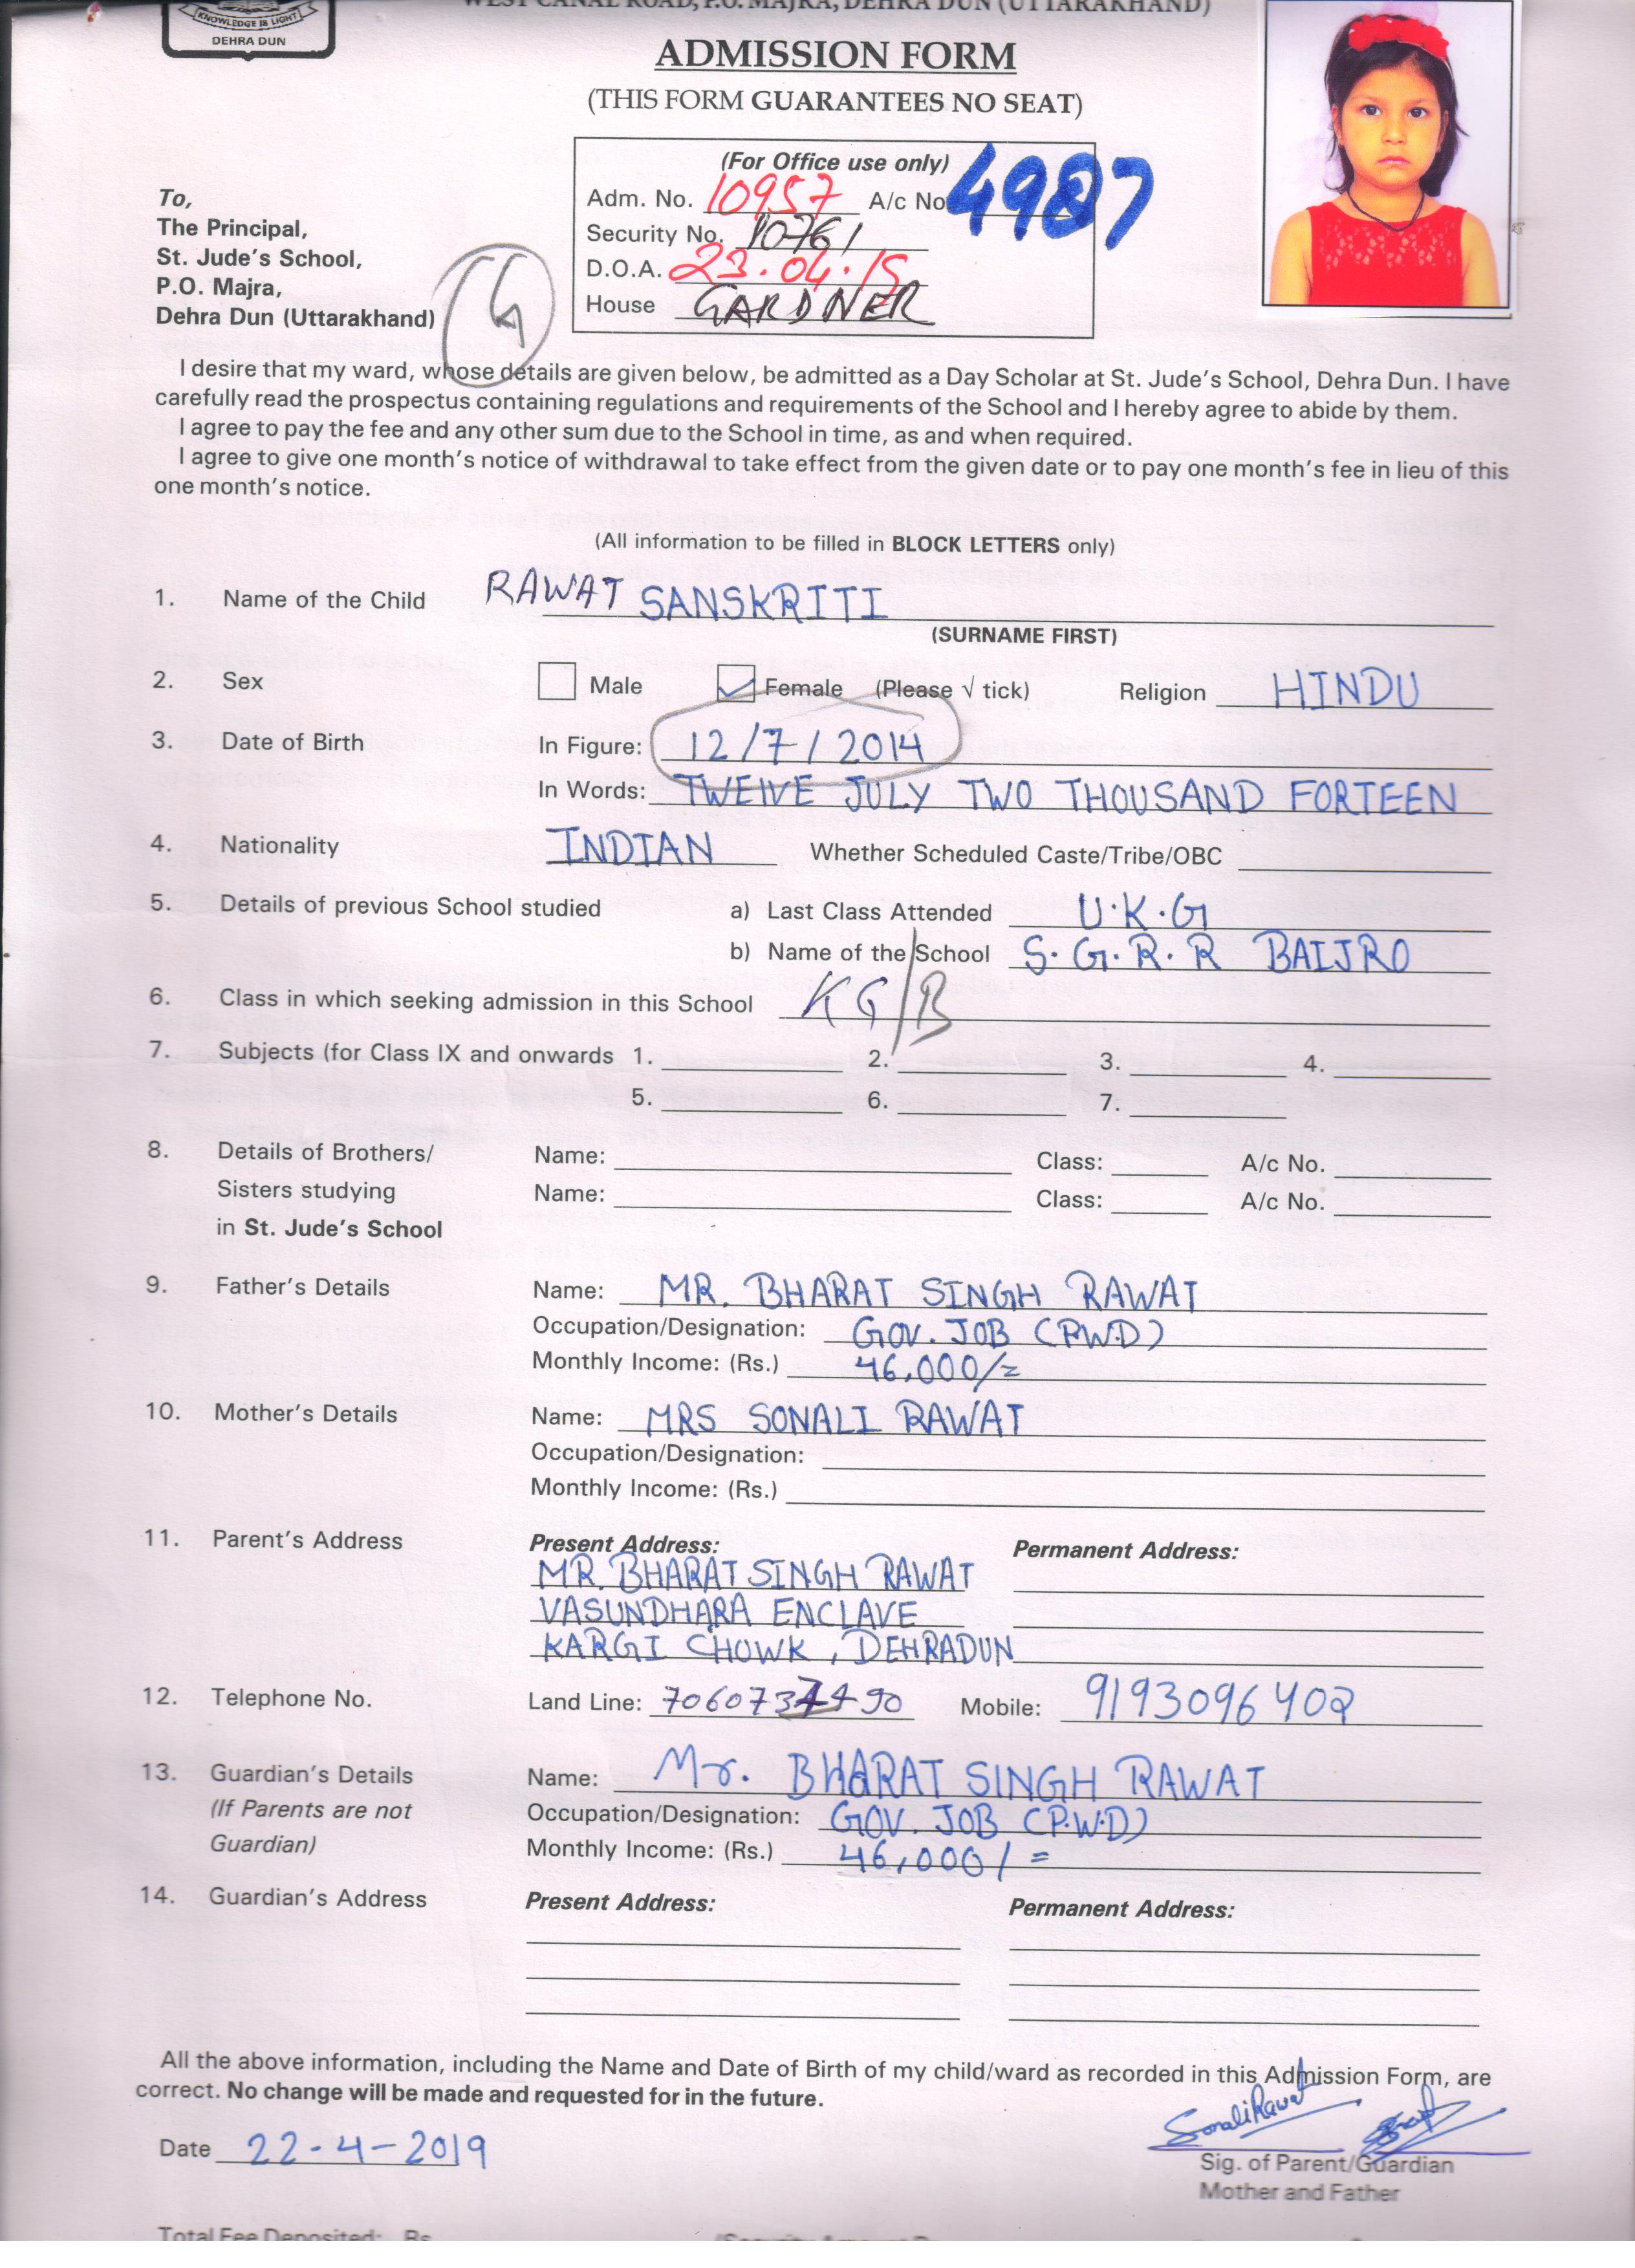 KNOWLEDGE IS LIGHT
DEHRA DUN
WEST CANAL ROAD, P.O. MAJRA, DEHRA DUN (UTTARAKHAND)
ADMISSION FORM
(THIS FORM GUARANTEES NO SEAT)
(For Office use only)
Adm. No. 10957 A/c No 4987
Security No. 10761
D.O.A. 23.04.19
House GARDNER
To,
The Principal,
St. Jude's School,
P.O. Majra,
Dehra Dun (Uttarakhand)
I desire that my ward, whose details are given below, be admitted as a Day Scholar at St. Jude's School, Dehra Dun. I have
carefully read the prospectus containing regulations and requirements of the School and I hereby agree to abide by them.
I agree to pay the fee and any other sum due to the School in time, as and when required.
I agree to give one month's notice of withdrawal to take effect from the given date or to pay one month's fee in lieu of this
one month's notice.
(All information to be filled in BLOCK LETTERS only)
1. Name of the Child RAWAT SANSKRITI
(SURNAME FIRST)
2. Sex Male Female (Please √ tick) Religion HINDU
3. Date of Birth In Figure: 12/7/2014
In Words: TWELVE JULY TWO THOUSAND FORTEEN
4. Nationality INDIAN Whether Scheduled Caste/Tribe/OBC
5. Details of previous School studied a) Last Class Attended U.K.G
b) Name of the School S.G.R.R BAIJRO
6. Class in which seeking admission in this School KG/B
7. Subjects (for Class IX and onwards 1. 2. 3. 4.
5. 6. 7.
8. Details of Brothers/ Name: Class: A/c No.
Sisters studying Name: Class: A/c No.
in St. Jude's School
9. Father's Details Name: MR. BHARAT SINGH RAWAT
Occupation/Designation: GOV. JOB (P.W.D)
Monthly Income: (Rs.) 46,000/=
10. Mother's Details Name: MRS SONALI RAWAT
Occupation/Designation:
Monthly Income: (Rs.)
11. Parent's Address Present Address: Permanent Address:
MR. BHARAT SINGH RAWAT
VASUNDHARA ENCLAVE
KARGI CHOWK, DEHRADUN
12. Telephone No. Land Line: Mobile: 9193096402
13. Guardian's Details Name: Mr. BHARAT SINGH RAWAT
(If Parents are not Occupation/Designation: GOV. JOB (P.W.D)
Guardian) Monthly Income: (Rs.) 46,000/=
14. Guardian's Address Present Address: Permanent Address:
All the above information, including the Name and Date of Birth of my child/ward as recorded in this Admission Form, are
correct. No change will be made and requested for in the future.
Sonali Rawat
Date 22-4-2019
Sig. of Parent/Guardian
Mother and Father
Total Fee Deposited: Rs